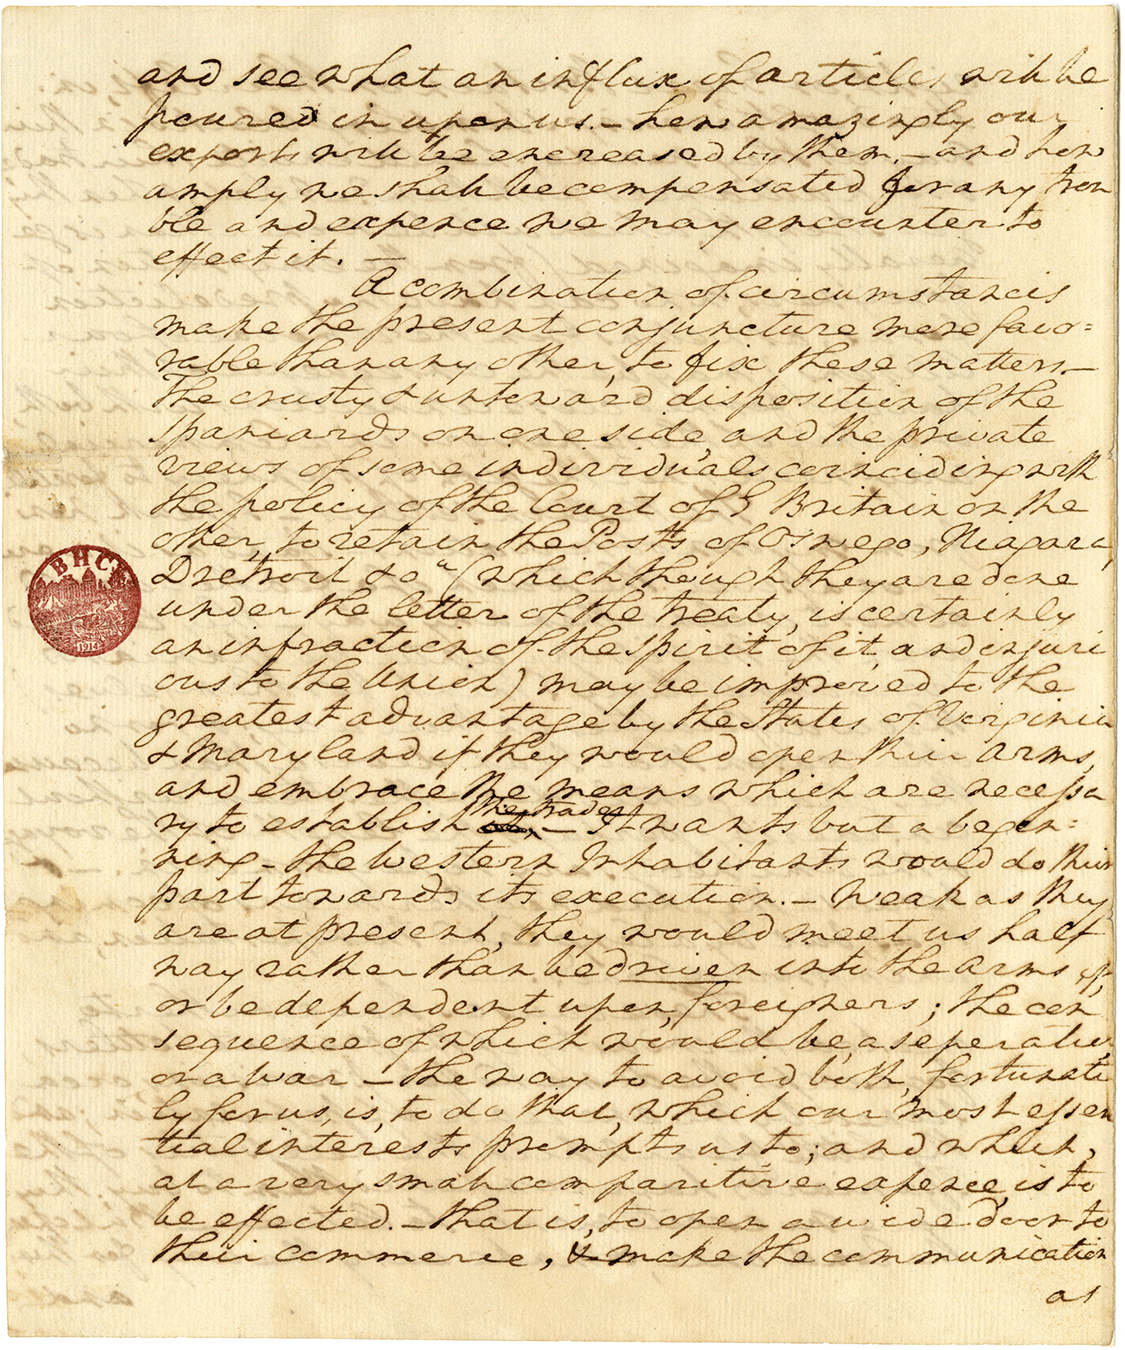 and see what an influx of articles will be
poured in upon us. – how amazingly our
exports will be encreased by them, – and how
amply we shall be compensated for any trou
ble and expence we may encounter to
effect it. –
A combination of circumstances
make the present conjuncture more favo=
rable than any other, to fix these matters. –
The crusty & untoward disposition of the
Spaniards on one side and the private
views of some individuals coinciding with
the policy of the Court of G Britain on the
other, to retain the Posts of Oswego, Niagara,
Dretroit &ca (which though they are done
under the letter of the treaty, is certainly
an infraction of the spirit of it, and injuri
ous to the Union) may be improved to the
greatest advantage by the States of Virginia
& Maryland if they would open their arms,
and embrace the means which are necessa
ry to establish the trade. – It wants but a begin=
ning – the Western Inhabitants would do their
part towards its execution. – Weak as they
are at present, they would meet us half
way rather than be driven into the arms of,
or be dependent upon, foreigners; the con
sequence of which would be, a seperation,
or a War – the way to avoid both, fortunate
ly for us, is, to do that, which our most essen
tial interests prompts us to; and which,
at a very small comparitive expence, is to
be effected. – that is, to open a wide door to
their commerce, & make the communication
as
BHC
1914